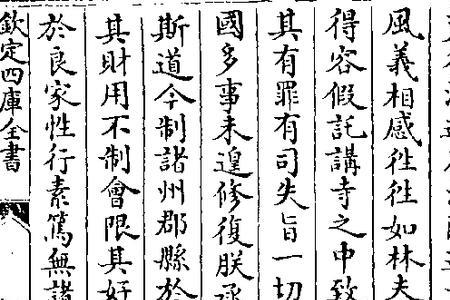 風義相感徃徃如林夫
得容假託講寺之中致
其有罪有司失旨一切
國多事未遑修復朕承
斯道今制諸州郡縣於
其財用不制會限其好
於良家性行素篤無諸
欽定四庫全書